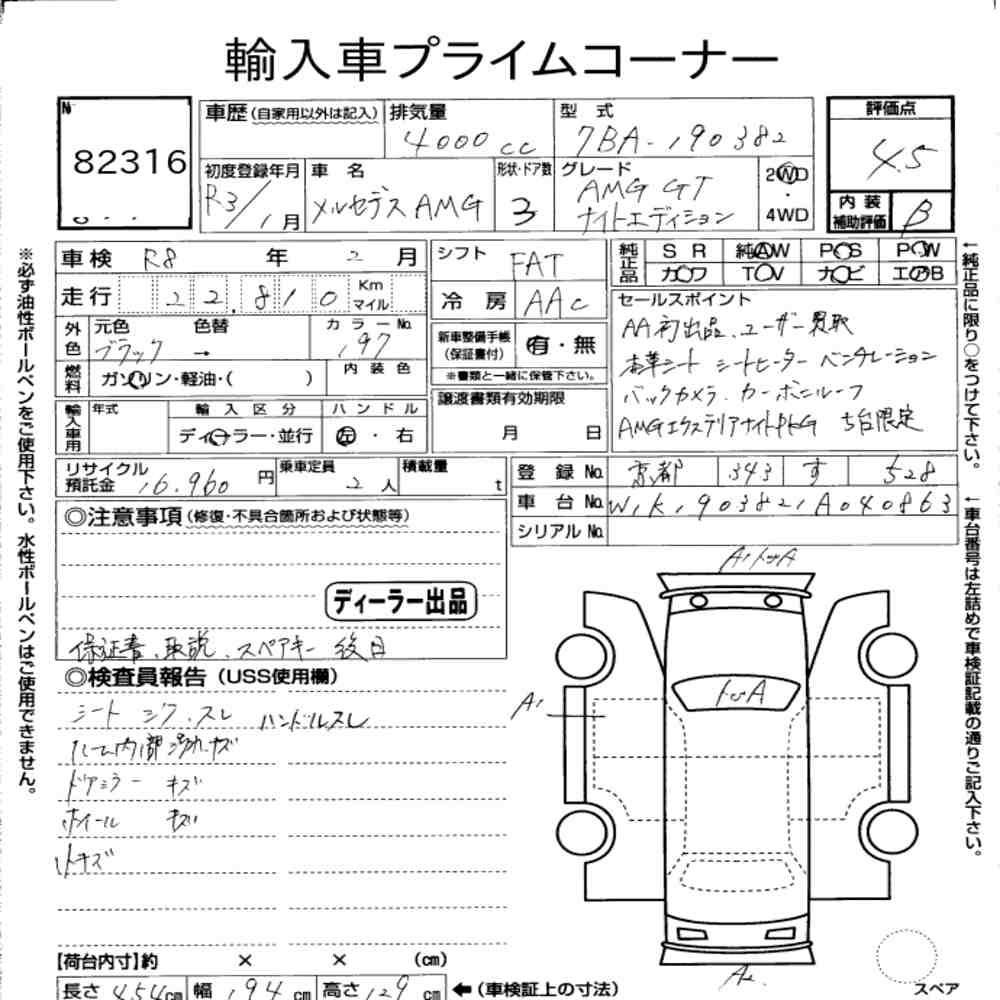 輸入車プライムコーナー
№
82316
車歴(自家用以外は記入)
排気量
4000cc
型式
7BA-190382
評価点
4.5
初度登録年月
R3/1月
車名
メルセデスAMG
形状・ドア数
3
グレード
AMG GT
ナイトエディション
2WD
・
4WD
内装
補助評価
B
車検 R8年 2月
走行 22,810 Km マイル
外色 元色 色替 カラーNo.
ブラック → 197
燃料 ガソリン・軽油・( ) 内装色
輸入車用 年式 輸入区分 ハンドル
ディーラー・並行 左・右
リサイクル預託金 16,960円
乗車定員 2人
積載量 t
シフト FAT
冷房 AAC
新車整備手帳(保証書付) 有・無
※書類と一緒に保管下さい。
譲渡書類有効期限
月 日
純正品 SR 純AW PS PW
カワ TV ナビ エアB
セールスポイント
AA初出品、ユーザー買取
本革シート シートヒーター ベンチレーション
バックカメラ、カーボンルーフ
AMGエクステリアナイトPKG 5台限定
登録No. 京都 343 す 528
車台No. W1K1903821A040863
シリアルNo.
◎注意事項(修復・不具合箇所および状態等)
ディーラー出品
保証書、取説、スペアキー 後日
◎検査員報告(USS使用欄)
シート シワ、スレ ハンドルスレ
ルーム内部 汚れ キズ
ドアミラー キズ
ホイール キズ
小キズ
A1 トビA
A1
トビA
A2
スペア
[荷台内寸]約 × × (cm)
長さ 454cm 幅 194cm 高さ 129cm
←(車検証上の寸法)
※必ず油性ボールペンをご使用下さい。水性ボールペンはご使用できません。
←純正品に限り○をつけて下さい。
←車台番号は左詰めで車検証記載の通りご記入下さい。